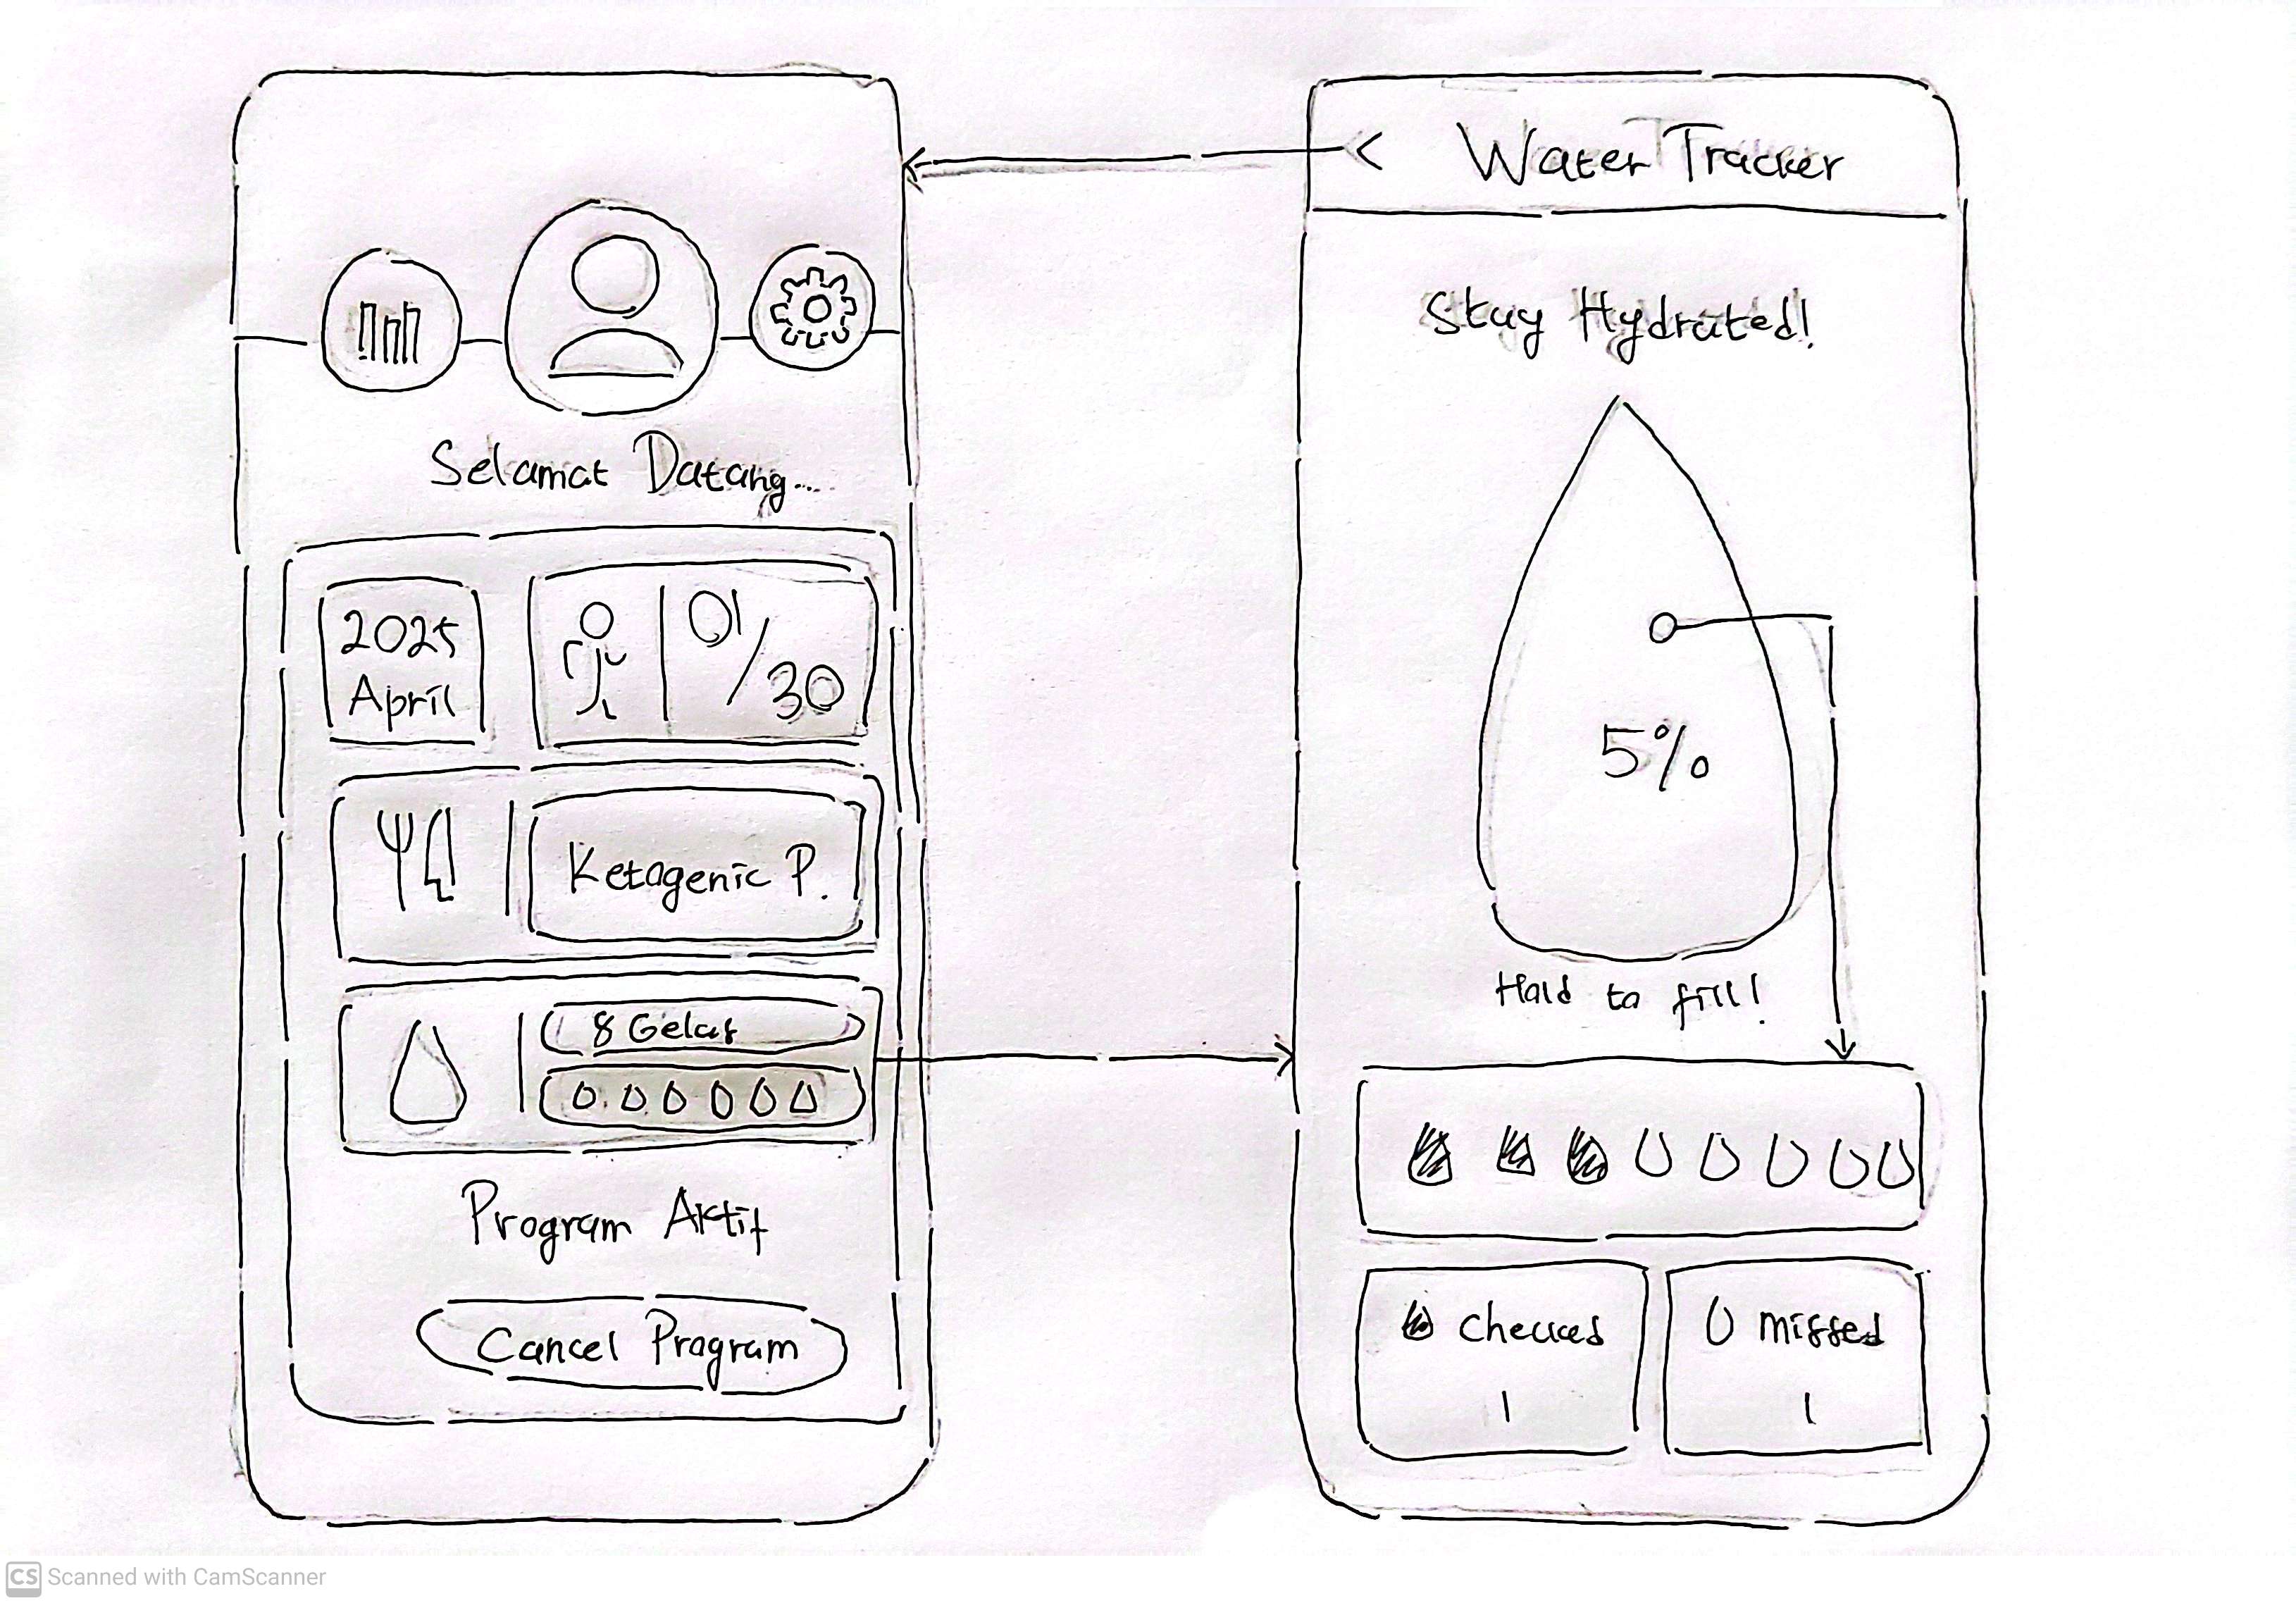 Selamat Datang...
2025
April
01/30
Ketogenic P.
8 Gelas
Program Aktif
Cancel Program
< Water Tracker
Stay Hydrated!
5%
Hold to fill!
checked
1
missed
1
CS Scanned with CamScanner